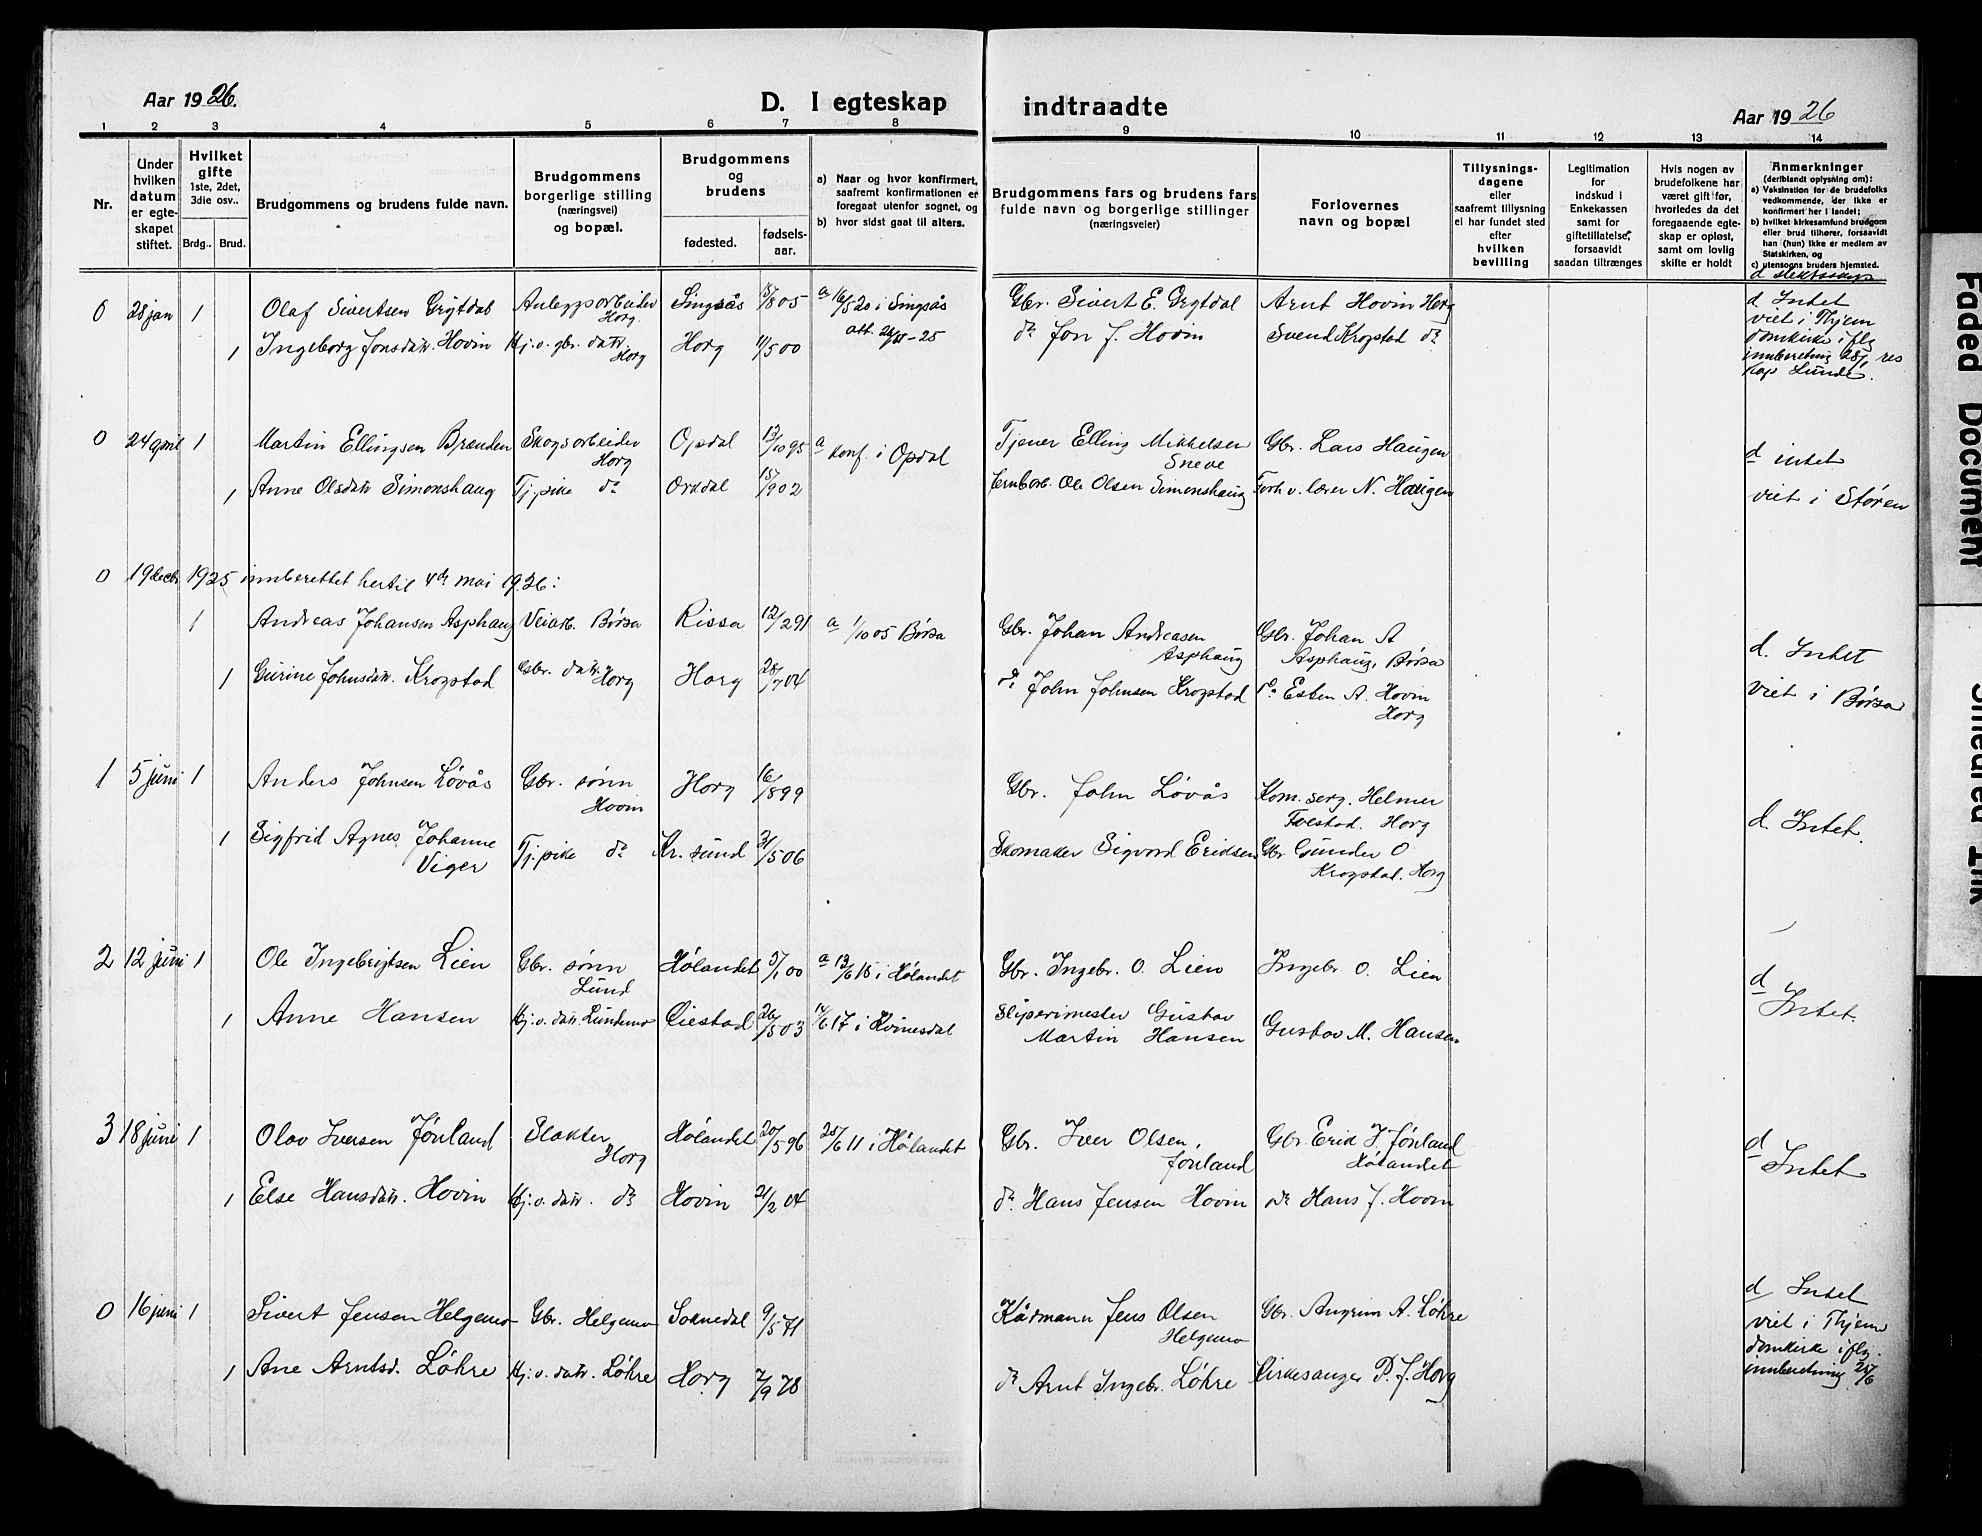 Aar 1926.
D. I egteskap indtraadte
Aar 1926
1 2 3 4 5 6 7 8 9 10 11 12 13 14
Nr.
Under hvilken datum er egteskapet stiftet.
Hvilket gifte 1ste, 2det, 3die osv..
Brdg. Brud.
Brudgommens og brudens fulde navn.
Brudgommens borgerlige stilling (næringsvei) og bopæl.
Brudgommens og brudens
fødested.
fødselsaar.
a) Naar og hvor konfirmert, saafremt konfirmationen er foregaat utenfor sognet, og
b) hvor sidst gaat til alters.
Brudgommens fars og brudens fars fulde navn og borgerlige stillinger (næringsveier)
Forlovernes navn og bopæl
Tillysningsdagene eller saafremt tillysning ei har fundet sted efter hvilken bevilling
Legitimation for indskud i Enkekassen samt for giftetillatelse, forsaavidt saadan tiltrænges
Hvis nogen av brudefolkene har været gift før, hvorledes da det foregaaende egteskap er opløst, samt om lovlig skifte er holdt
Anmerkninger (deriblandt oplysning om):
a) Vaksination for de brudefolks vedkommende, der ikke er konfirmert her i landet;
b) hvilket kirkesamfund brudgom eller brud tilhører, forsaavidt han (hun) ikke er medlem av Statskirken, og
c) utensogns bruders hjemsted.
d slektsskap
0 28 jan 1 Olaf Sivertsen Grytdal Anleggsarbeider Horg. Singsås 5/8 05 a 16/5 20 i Singsås Gbr. Sivert E. Grytdal Arnt Hovin Horg d Intet
att. 24/11-25 viet i Thjem
1 Ingeborg Jonsdatr. Hovin Hj.v. gbr. datr. Horg Horg 11/5 00 do Jon J. Hovin Svend Krogstad do domkirke iflg
innberetning 28/1 res
kap Lunde.
0 24 april 1 Martin Ellingsen Brænden Skogsarbeider Horg Opdal 13/10 95 a konf. i Opdal Tjener Elling Mikkelsen Sneve Gbr. Lars Haugen d intet
1 Anne Olsdatr Simonshaug Tj.pike do Orkdal 15/9 02 Ernbarb. Ole Olsen Simonshaug Forh v. lærer N. Haugen viet i Støren
0 19 decbr 1925 innberettet hertil 4de mai 1926:
1 Andreas Johansen Asphaug Veiarb. Børsa Rissa 12/2 91 a 1/10 05 Børsa Gbr. Johan Andreasen Asphaug Gbr. Johan A Asphaug, Børsa d. Intet
1 Gurine Johnsdatr. Krogstad Gbr. datr. Horg Horg 28/7 04 do John Johnsen Krogstad do Esten A. Hovin Horg viet i Børsa
1 5 juni 1 Anders Johnsen Løvås Gbr. sønn Hovin Horg 16/8 99 Gbr. John Løvås Kom. serg. Helmer Foestad. Horg d. Intet.
1 Sigfrid Agnes Johanne Viger Tj.pike do Kr. sund 31/5 06 Skomaker Sigvard Eriksen Gbr Gunder O Krogstad. Horg
2 12 juni 1 Ole Ingebrigtsen Lien Gbr. sønn Lund Hølandet 5/1 00 a 13/6 15 i Hølandet Gbr. Ingebr. O. Lien Ingebr O. Lien d Intet.
1 Anne Hansen Hj.v. datr. Lundemo Eiestad 26/5 03 14/6 17 i Kvinesdal Sliperimester Gustav Martin Hansen Gustav M. Hansen
3 18 juni 1 Olav Iversen Jønland Slakter Horg Hølandet 20/5 96 25/6 11 i Hølandet Gbr. Iver Olsen, Jønland Gbr. Erik I. Jønland Hølandet d Intet
1 Else Hansdatr. Hovin Hj.v. datr. do Hovin 21/2 04 do Hans Jensen Hovin do Hans J. Hovin
0 16 juni 1 Sivert Jensen Helgemo Gbr. Helgemo Soknedal 9/5 71 Kårmann Jens Olsen Helgemo Gbr. Angrim A. Løhre d Intet
viet i Thjem
1 Ane Arntsd. Løhre Hj.v. datr. Løhre Horg 7/9 78 do Arnt Ingebr. Løhre Kirkesanger P. J. Horg domkirke iflg.
innberetning 25/6
Faded Document
Smeared Ink